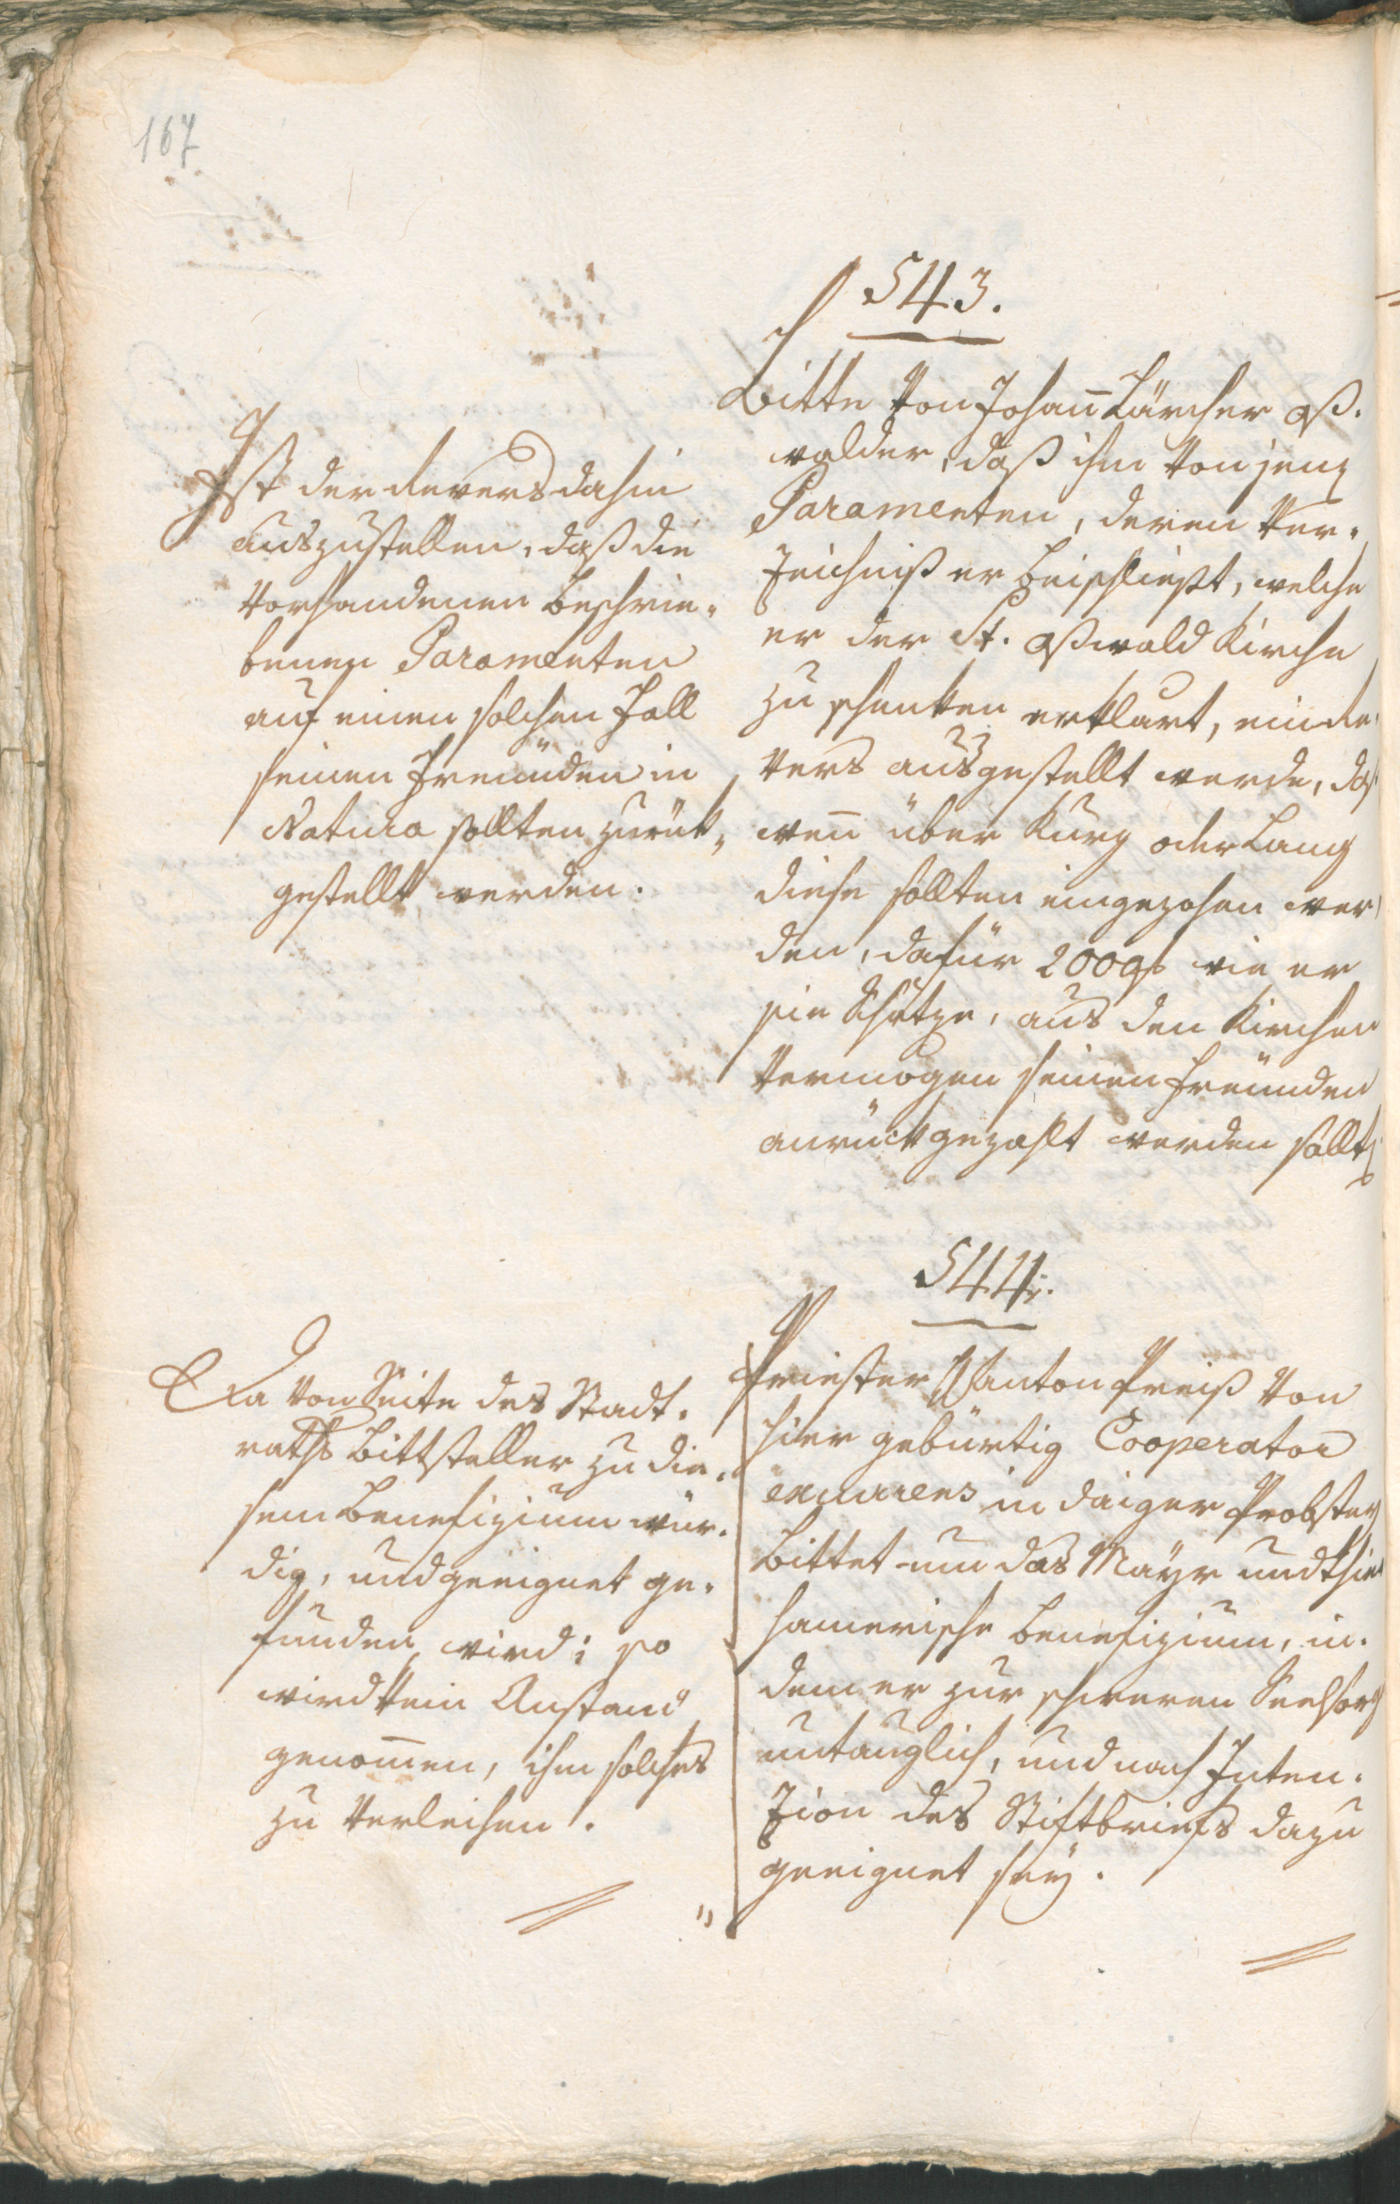 167
543.
Bitte von Johañ Lärcher Oß-
walder, daß ihm von jenen
Paramenten, deren Ver-
zeichniß er beischließt, welche
er der St. Oßwald Kirche
zu schenken erklärt, ein Re-
vers ausgestellt werde, daß
weñ über Kurz oder Lang
diese sollten eingezohen wer
den, dafür 200 f wie er
sie Schätze, aus den Kirchen
Vermögen seinen Freünden
zurückgezahlt werden sollte
Ist der Revers dahin
auszustellen, daß die
vorhandenen beschrie-
benen Paramenten
auf einen solchen Fall
seinen Freunden in
Natura sollten zurük-
gestellt werden.
544.
Priester Anton Preiß von
hier gebürtig Cooperator
excurrens in daiger Probstey
bittet um das Mayr und
hamerische Benefizium, in-
dem er zur schweren Seelsorg
untauglich, und nach Inten-
zion des Stiftbriefs dazu
geeignet sey.
Da von Seite des Stadt-
raths Bittsteller zu die-
sem Benefizium wür-
dig, und geeignet ge-
funden wird; so
wird kein Anstand
genom̃en, ihm solches
zu verleihen.